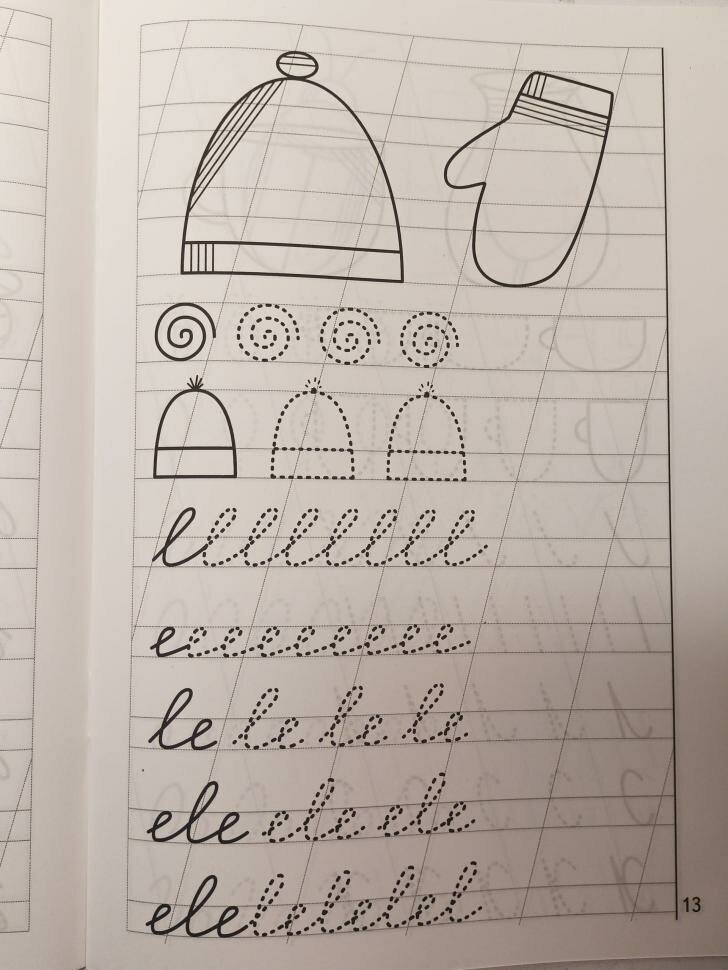 llllllll
eeeeeeeee
le le le le
ele ele ele
elelelelel
13